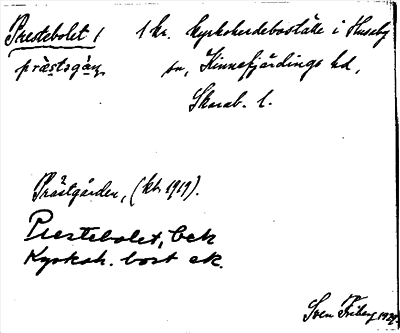 Prestebolet 1 1 kr. kyrkoherdeboställe i Husaby
prästsgån sn, Kinnefjärdings hd,
Skarab. l.
Prästgården, (kt. 1919).
Prestebolet, bek
Kyrkoh. bost ek.
Sven Friberg 1927.